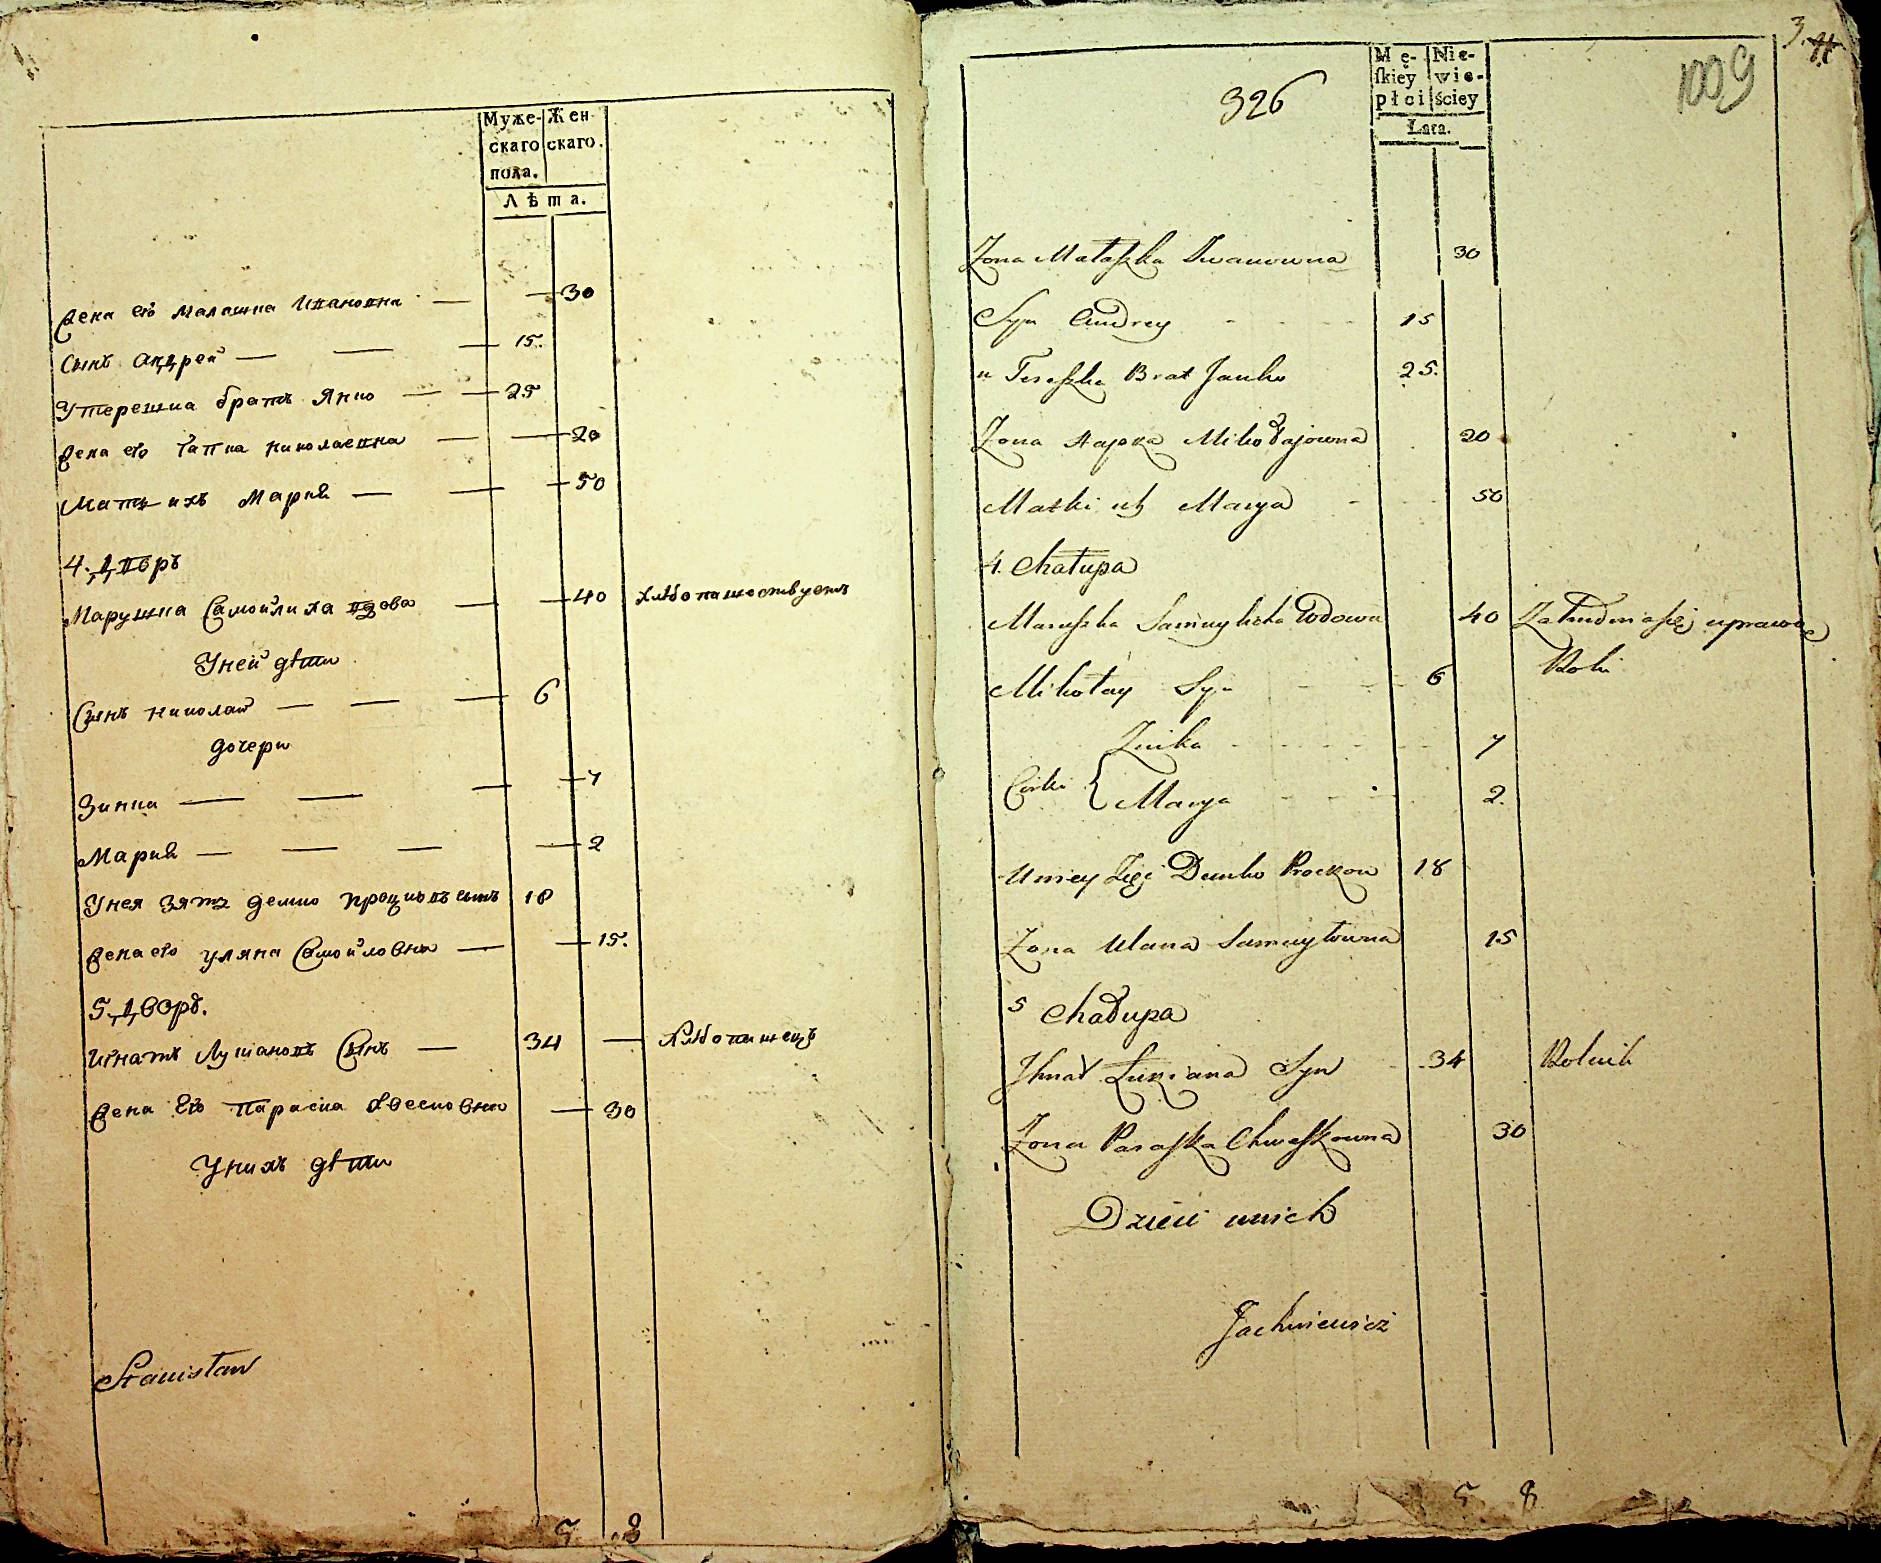 Муже- Жен
скаго скаго.
пола.
Лѣта.
Жена его малашка Ивановна — — 30
Сынъ андрей — — — 15.
Утерешка братъ Янко — — 25
Жена его Гапка николаевна — — 20
Мать ихъ Мария — — — 50
4. Дворъ
Марушка Самойлиха вдова — — 40 хлебопашествуетъ
Уней дѣти
Сынъ николай — — — 6
дочери
Зинка — — — 7
Мария — — — — 2
Унея зять демко процковъ сынъ 18
Жена его уляна Самойловна — — 15.
5. Дворъ.
Игнатъ Лукіановъ Сынъ — 34 — хлебопашецъ
Жена Его Параска хвесковна — 30
Унихъ дѣти
Stanisław
5 8
3. 4
1009
326
Mę- Nie-
skiey wie-
płci ściey
Lata.
Zona Małaszka Iwanowna 30
Syn Andrey 15
u Tereszka Brat Janko 25.
Zona Hapka Mikołajowna 20
Matki ich Marya 50
4. Chałupa
Maruszka Samuylicha Wdowa 40 Zatrudnia się uprawą
Roli
Mikołay Syn 6
Zinka 7
Corki { Marya 2.
U niey Zięć Demko Prockow 18
Zona Ulana Samuyłowna 15
5 Chałupa
Ihnat Łukiana Syn 34 Rolnik
Zona Paraska Chweskowna 30
Dzieci u nich
Jachniewicz
5 8